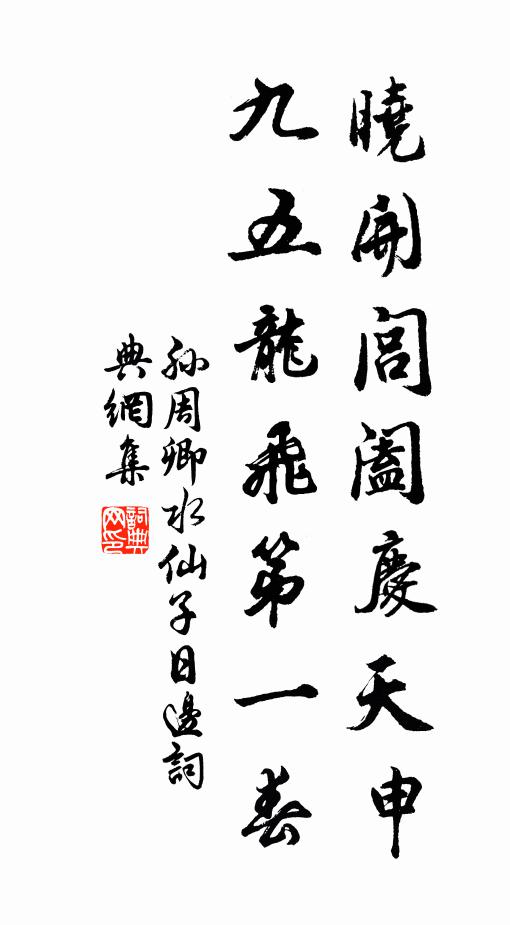 曉開閶闔慶天申
九五龍飛第一春
孫周卿水仙子日邊詞
典網集
詞典
网印